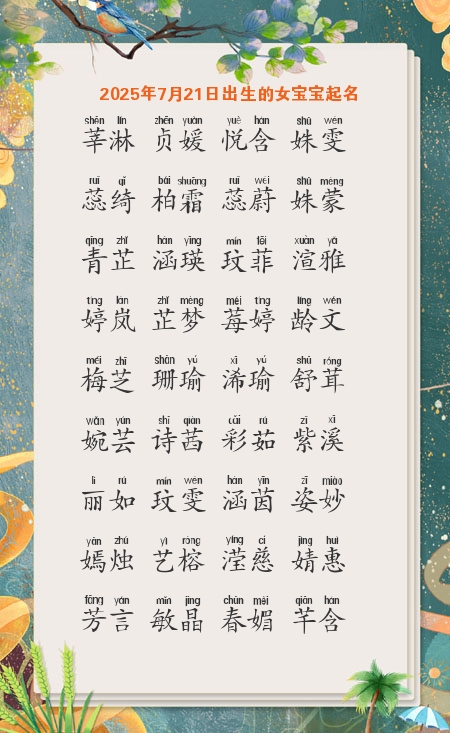 2025年7月21日出生的女宝宝起名
shēn lín zhēn yuàn yuè hán shū wén
莘淋 贞媛 悦含 姝雯
ruǐ qǐ bǎi shuāng ruǐ wèi shū méng
蕊绮 柏霜 蕊蔚 姝蒙
qīng zhǐ hán yīng mín fēi xuàn yǎ
青芷 涵瑛 玟菲 渲雅
tíng lán zhǐ mèng méi tíng líng wén
婷岚 芷梦 莓婷 龄文
méi zhī shān yú xī yú shū róng
梅芝 珊瑜 浠瑜 舒茸
wǎn yún shī qiàn cǎi rú zǐ xī
婉芸 诗茜 彩茹 紫溪
lì rú mín wén hán yīn zī miào
丽如 玟雯 涵茵 姿妙
yān zhú yì róng yíng cí jìng huì
嫣烛 艺榕 滢慈 婧惠
fāng yán mǐn jīng chūn mèi qiān hán
芳言 敏晶 春媚 芊含